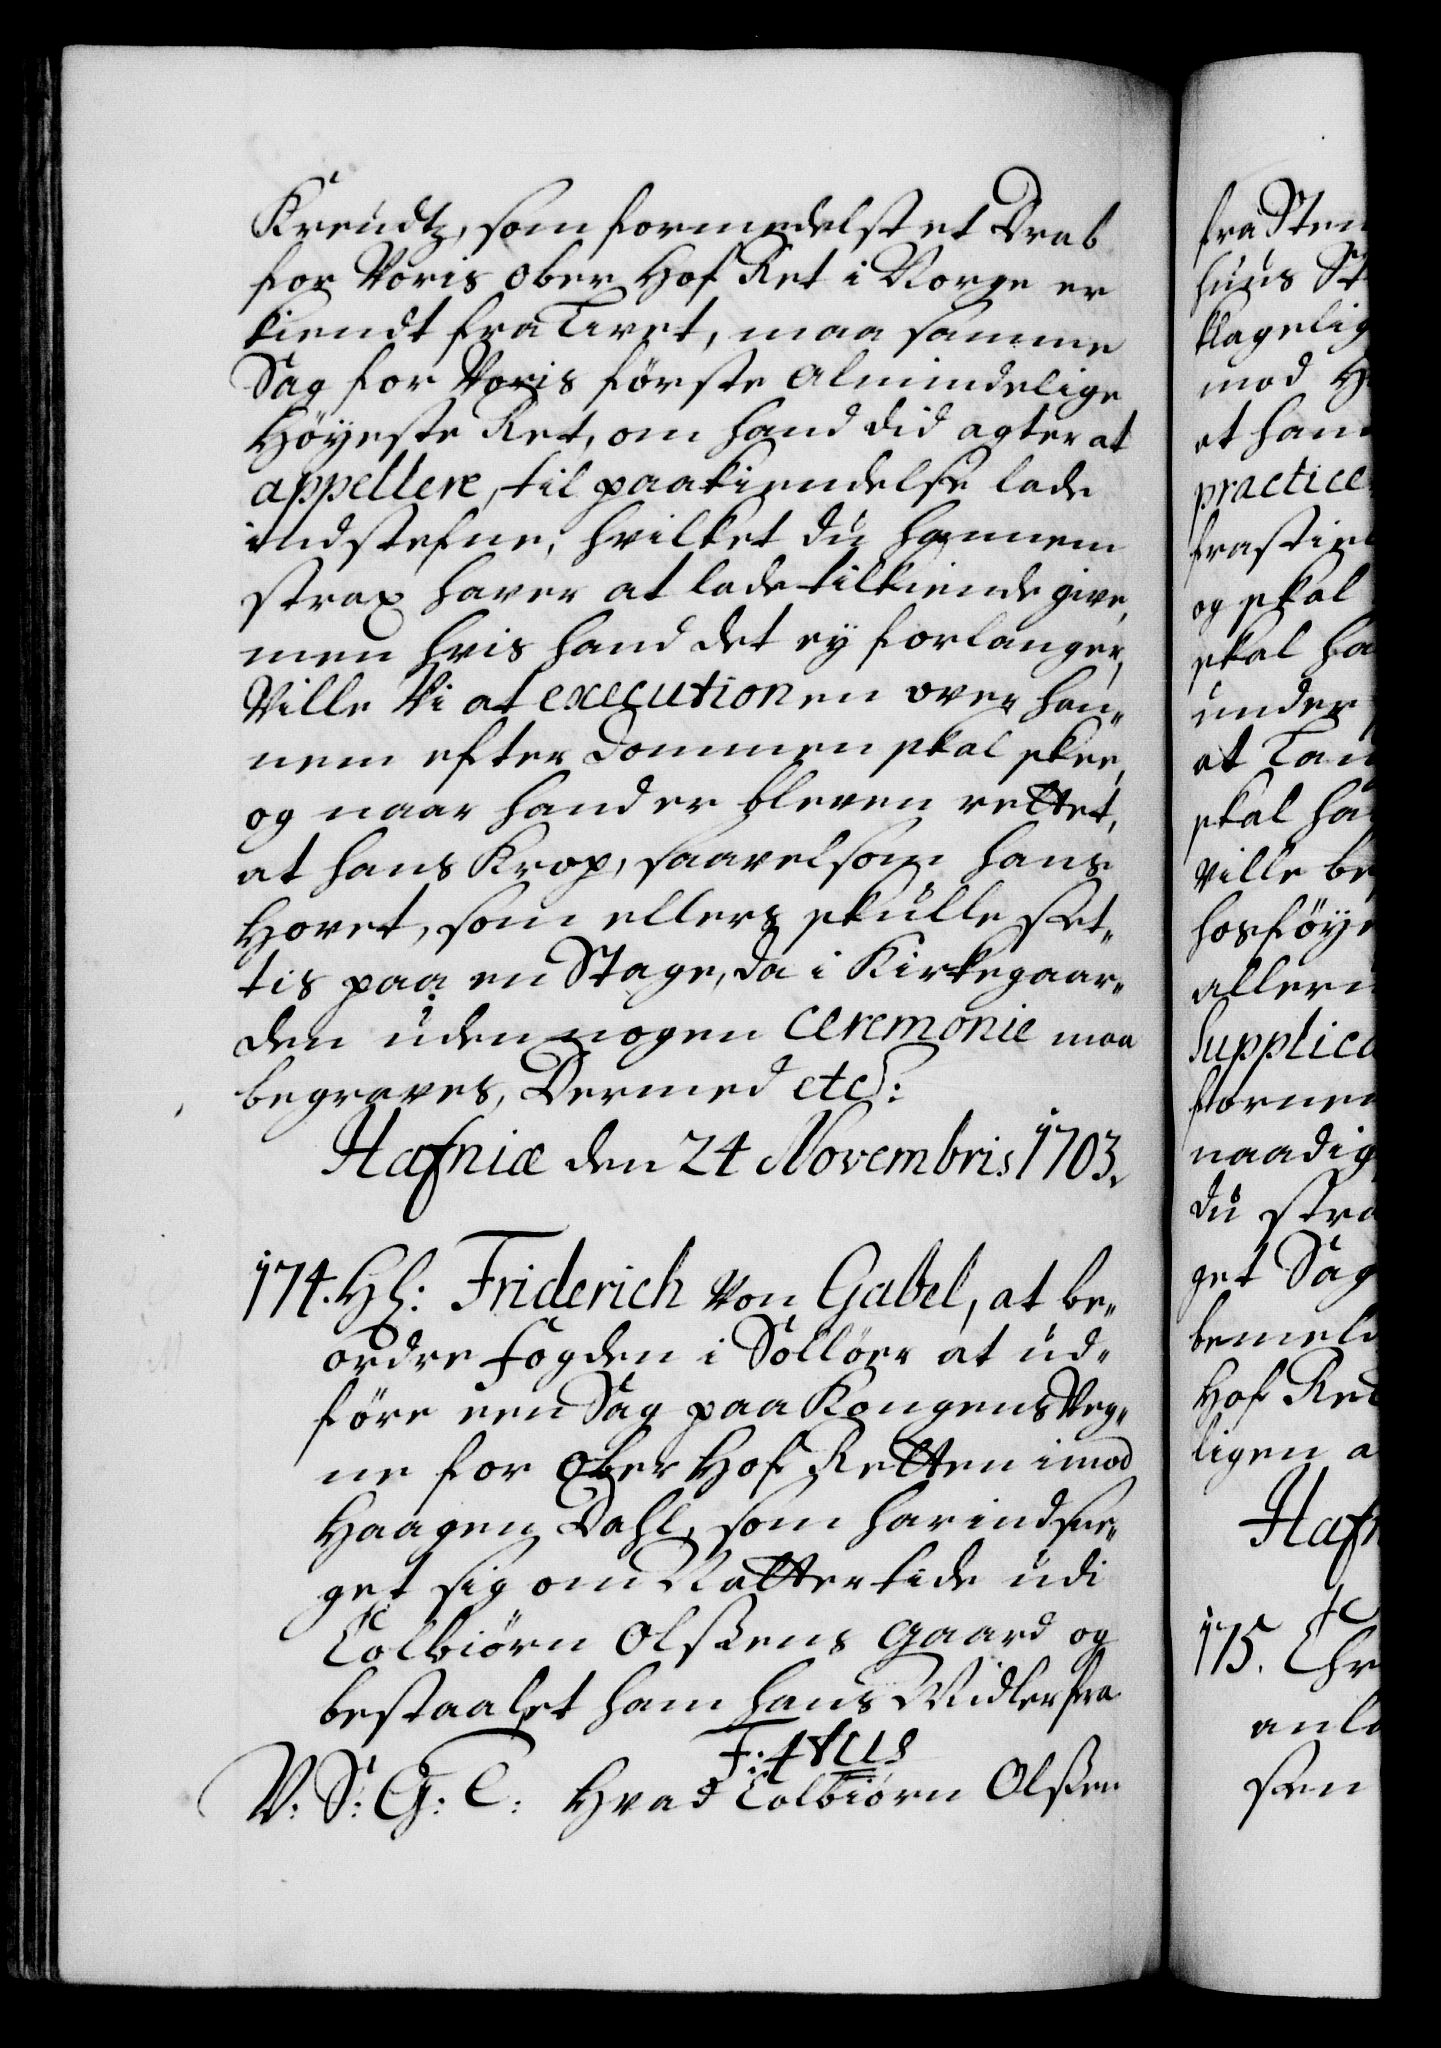 Kreudtz, som formedelst et Drab
for Voris Ober Hof Ret i Norge er
kiendt fra Livet, maa samme
Sag for Voris förste Almindelige
Höyeste Ret, om hand did agter at
appellere, til paakiendelse lade
indstefne, hvilket du hannem
strax haver at lade tilkiende give,
men hvis hand det ey forlanger,
Ville Vi at executionen over han„
nem efter Dommen skal skee,
og naar hand er bleven rettet,
at hans Krop, saavelsom hans
Hovet, som ellers skulle set„
tis paa en Stage, da i Kirkegaar„
den uden nogen Ceremonie maa
begraves, Dermed etc:
Hafniæ den 24 Novembris 1703.
174. Hr: Friderich Von Gabel, at be„
ordre Fogden i Sollöer at ud„
före een Sag paa Kongens Veg„
ne for Ober Hof Retten imod
Haagen Dahl, som har indsne„
get sig om Natter tide udi
Colbiörn Olssens Gaard og
bestaalet ham hans Midler fra
V: S: G: T: Hvad Colbiörn Olssen
fra Sten
huus St
klagelig
mod H
at han
practice
frastiel
og skal
skal ha
under
at
skal ha
Ville be
hosföye
allern
Supplica
fornem
naadig
du stra
get Sag
bemeld
Hof Ret
ligen a
Hafn
175. Chr
anl
sen